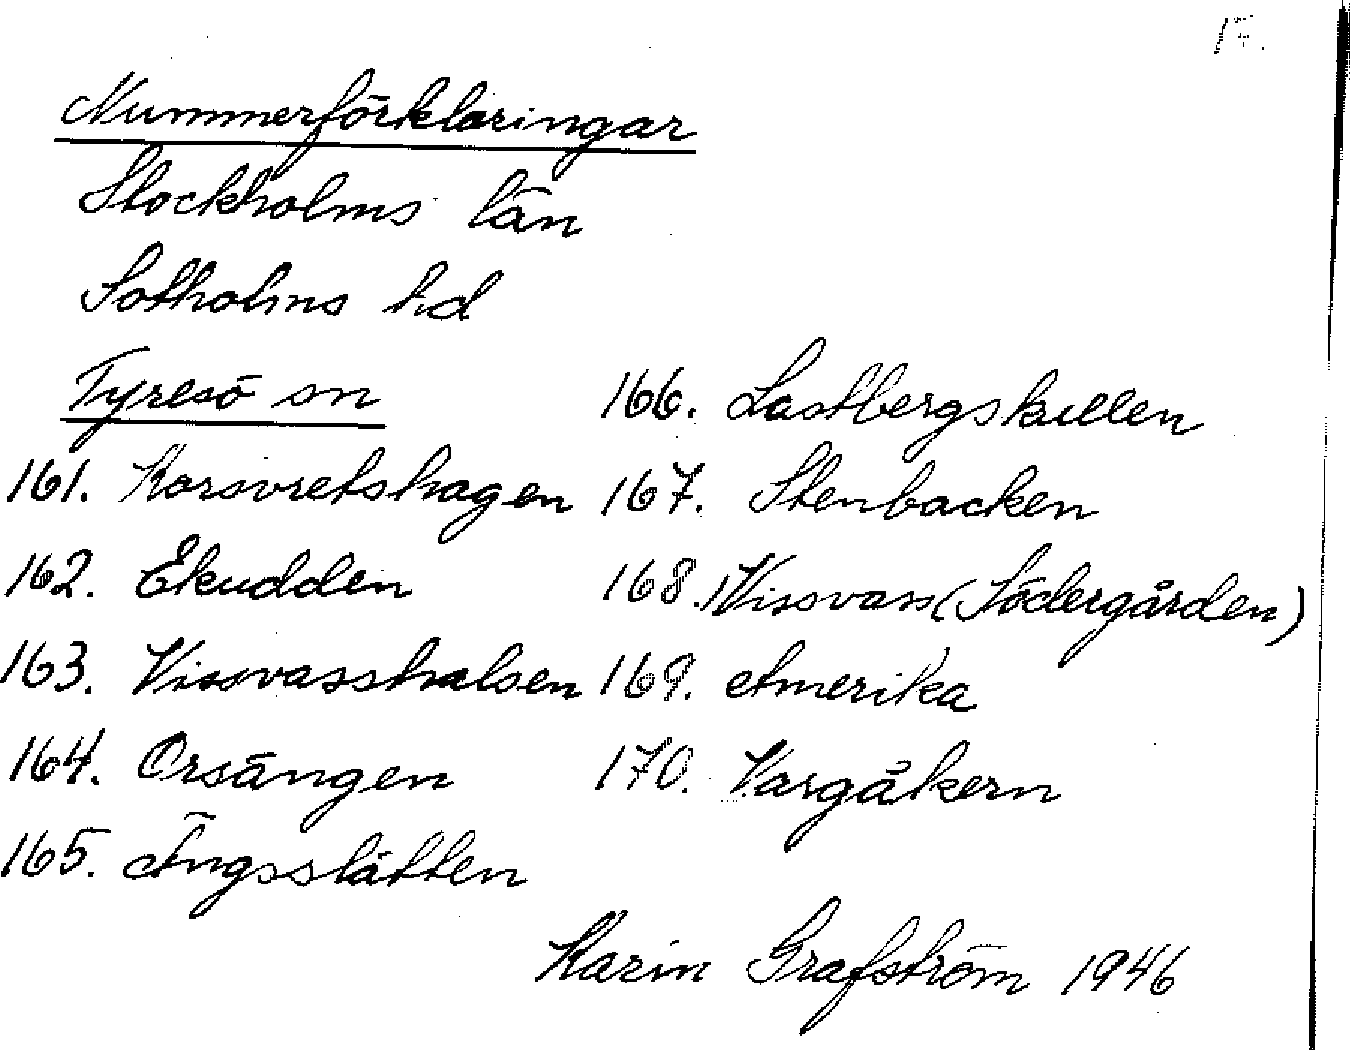 17.
Nummerförklaringar
Stockholms län
Sotholms hd
Tyresö sn
161. Korsvretshagen
162. Ekudden
163. Vissvasshalsen
164. Orsängen
165. Ängsslätten
166. Lastbergskullen
167. Stenbacken
168. Vissvass (Södergården)
169. Amerika
170. Vargåkern
Karin Grafström 1946